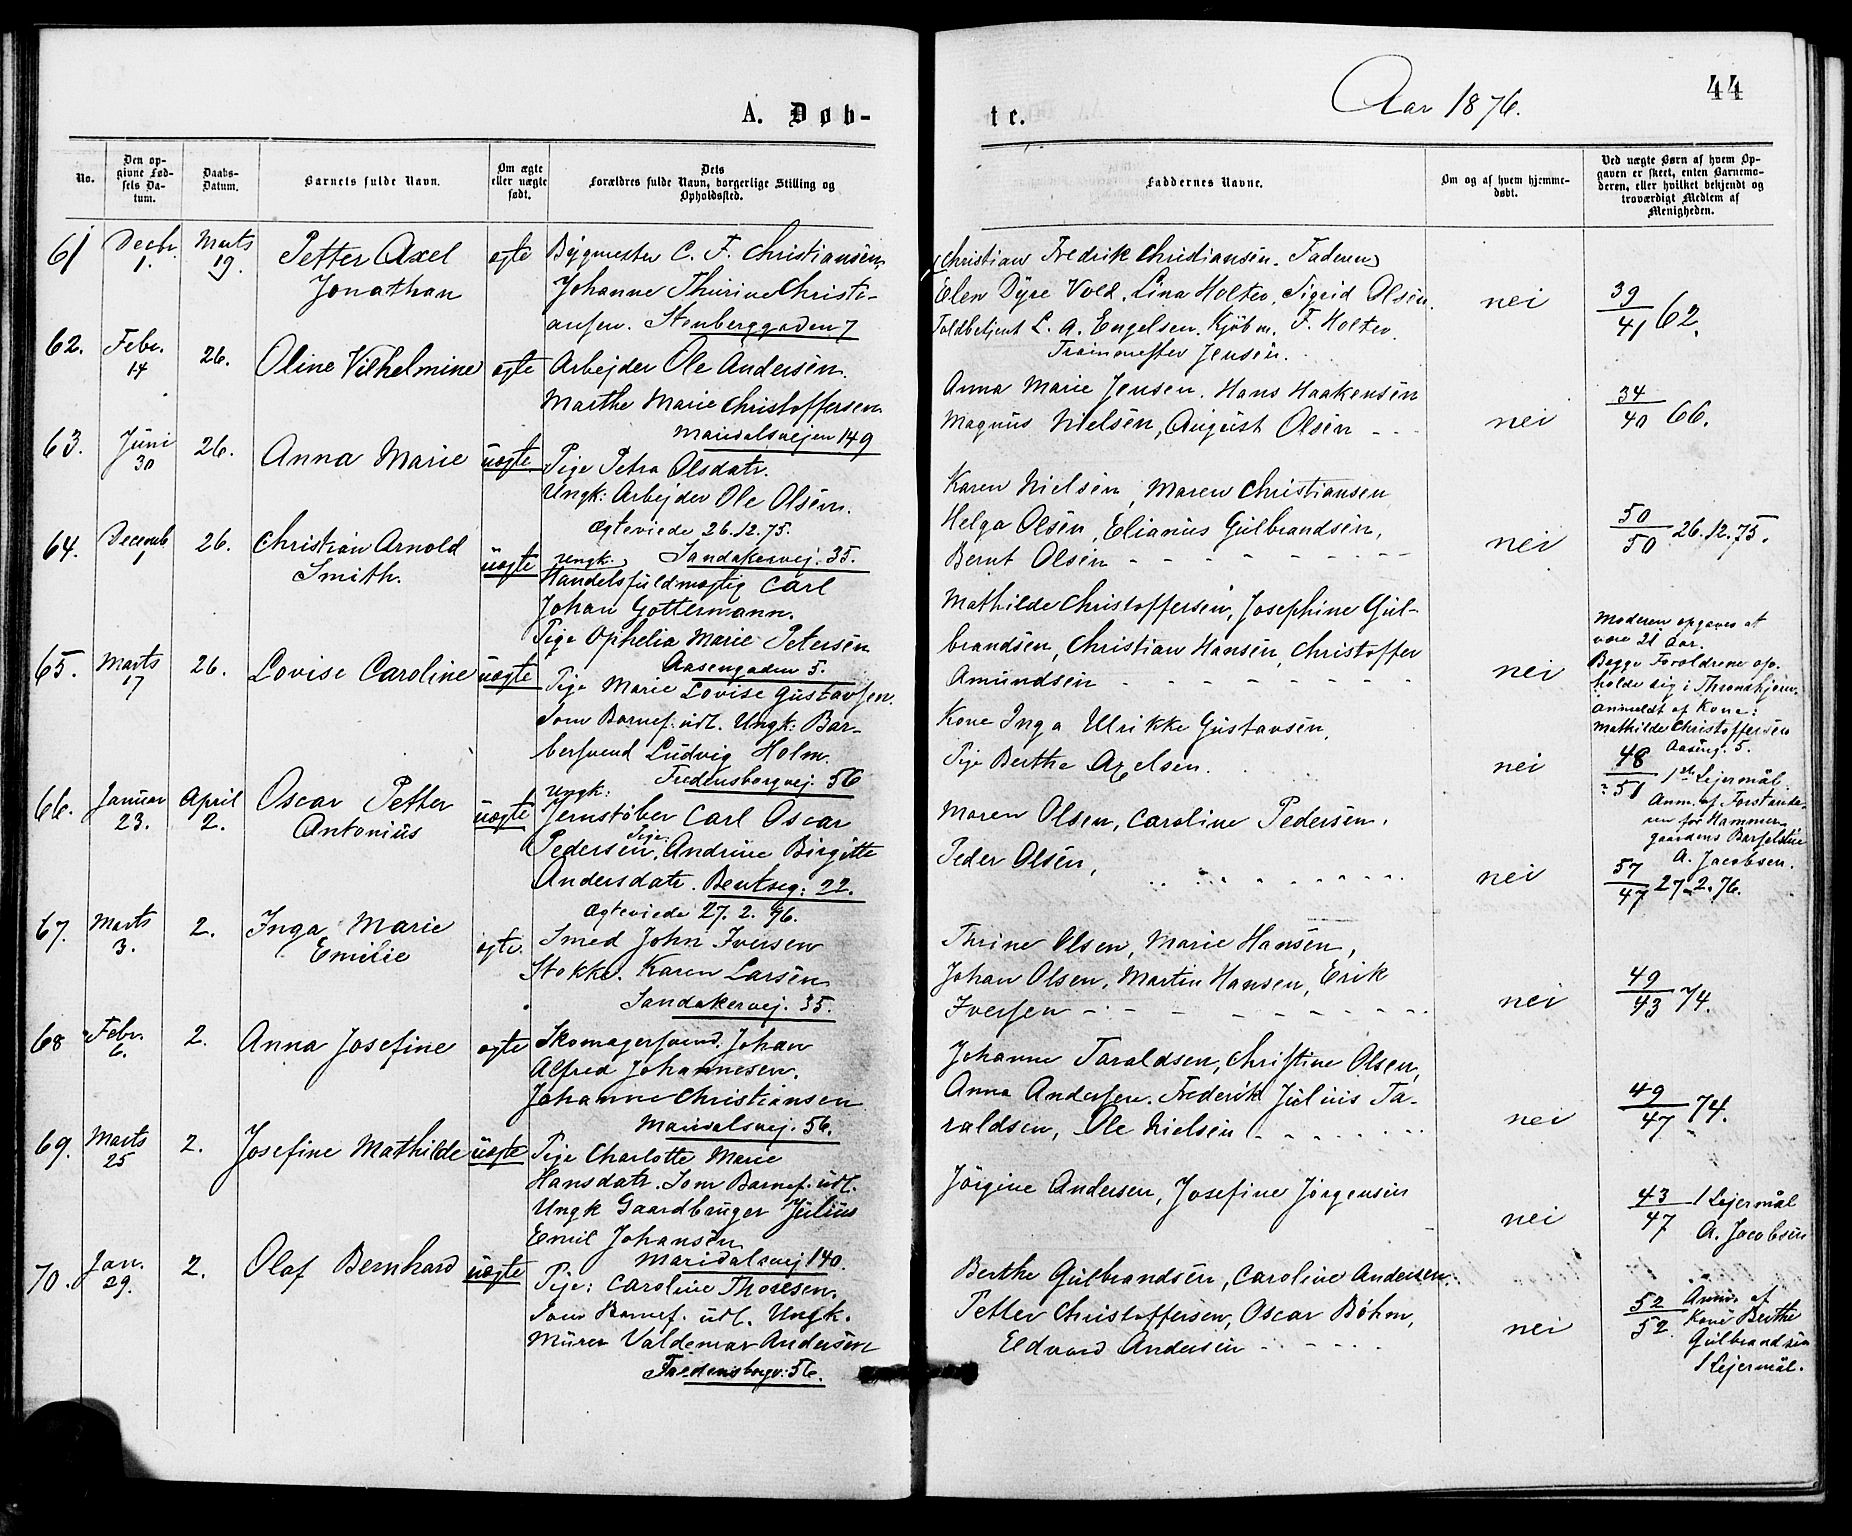 A. Døb-
No.
Den op-
givne Fød-
sels Da-
tum.
Daabs-
Datum.
Barnets fulde Navn.
Om ægte
eller uægte
født.
Dets
Forældres fulde Navn, borgerlige Stilling og
Opholdssted.
61 Decbr. 1. Marts 19. Petter Axel ægte Bygmester C. F. Christiansen,
Jonathan Johanne Thurine Christi-
ansen. Stenberggaden 7
62. Febr. 14 26. Oline Vilhelmine ægte Arbejder Ole Andersen.
Marthe Marie Christoffersen.
Maridalsvejen 149
63. Juni 30 26. Anna Marie uægte Pige Petra Olsdatr.
Ungk: Arbejder Ole Olsen.
Ægteviede 26.12.75.
Sandakervej. 35.
64. Decemb 1 26. Christian Arnold uægte Ungk.
Smith. Handelsfuldmægtig Carl
Johan Gottermann.
Pige Ophelia Marie Petersen
Aasengaden 5.
65. Marts 17 26. Lovise Caroline uægte Pige Marie Lovise Gustavsen.
Som Barnef. udl. Ungk: Bar-
bersvend Ludvig Holm.
Fredensborgvej. 56
66. Januar 23. April 2. Oscar Petter uægte Ungk:
Antonius Jernstøber Carl Oscar
Pedersen, Pige Andrine Birgitte
Andersdatr. Bentseg: 22.
Ægteviede 27. 2. 76.
67. Marts 3. 2. Inga Marie ægte. Smed John Iversen
Emilie Stokke. Karen Larsen
Sandakervej. 35.
68 Febr. 6. 2. Anna Josefine ægte Skomagersvend. Johan
Alfred Johannesen.
Johanne Christiansen
Maridalsvej. 56.
69. Marts 25 2. Josefine Mathilde uægte Pige Charlotte Marie
Hansdatr. Som Barnef. udl.
Ungk Gaardbruger Julius
Emil Johansen
Maridalsvej 140.
70. Jan. 29. 2. Olaf Bernhard uægte Pige: Caroline Thoresen.
Som Barnef. udl. Ungk.
Murer Valdemar Andersen
Fredensborgv: 56.
te.
Aar 1876.
44
Faddernes Navne.
Om og af hvem hjemme-
døbt.
Ved uægte Børn af hvem Op-
gaven er skeet, enten Barnemo-
deren, eller hvilket bekjendt og
troværdigt Medlem af
Menigheden.
Christian Fredrik Christiansen. Faderen
Elen Dyre Vold, Lina Holter, Sigrid Olsen. nei 39/41 62.
Toldbetjent L. A. Engelsen. Kjøbm. F. Holter.
Jensen.
Anna Marie Jensen. Hans Haakensen
Magnus Nielsen, August Olsen - - nei 34/40 66.
Karen Nielsen, Maren Christiansen
Helga Olsen, Elianus Gulbrandsen,
Bernt Olsen - - - nei 50/50 26.12.75.
Mathilde Christoffersen, Josephine Gul-
brandsen, Christian Hansen, Christoffer
Amundsen - - - nei
Moderen opgaves at
være 21 Aar.
Begge Forældrene op-
holde sig i Thronhjem.
Anmeldt af Kone:
Mathilde Christoffersen
Aaseng. 5.
Kone Inga Ulrikke Gustavsen,
Pige Berthe Axelsen. nei 48/51 1ste Lejermål.
Anm. af Forstande-
ren for Hammer-
gaardens Barselstue
A. Jacobsen.
Maren Olsen, Caroline Pedersen,
Peder Olsen, nei 57/47 27.2.76.
Thrine Olsen, Marie Hansen,
Johan Olsen, Martin Hansen, Erik
Iversen - - - nei 49/43 74.
Johanne Taraldsen, Christine Olsen,
Anna Andersen. Frederik Julius Ta-
raldsen, Ole Nielsen - - - nei 49/47 74.
Jørgine Andersen, Josefine Jørgensen nei 43/47 1 Lejermål
A. Jacobsen
Berthe Gulbrandsen, Caroline Andersen.
Petter Christoffersen, Oscar Bøhm,
Edvard Andersen - - - nei 52/52. Anm. af
Kone Berthe
Gulbrandsen
1 Lejermål.